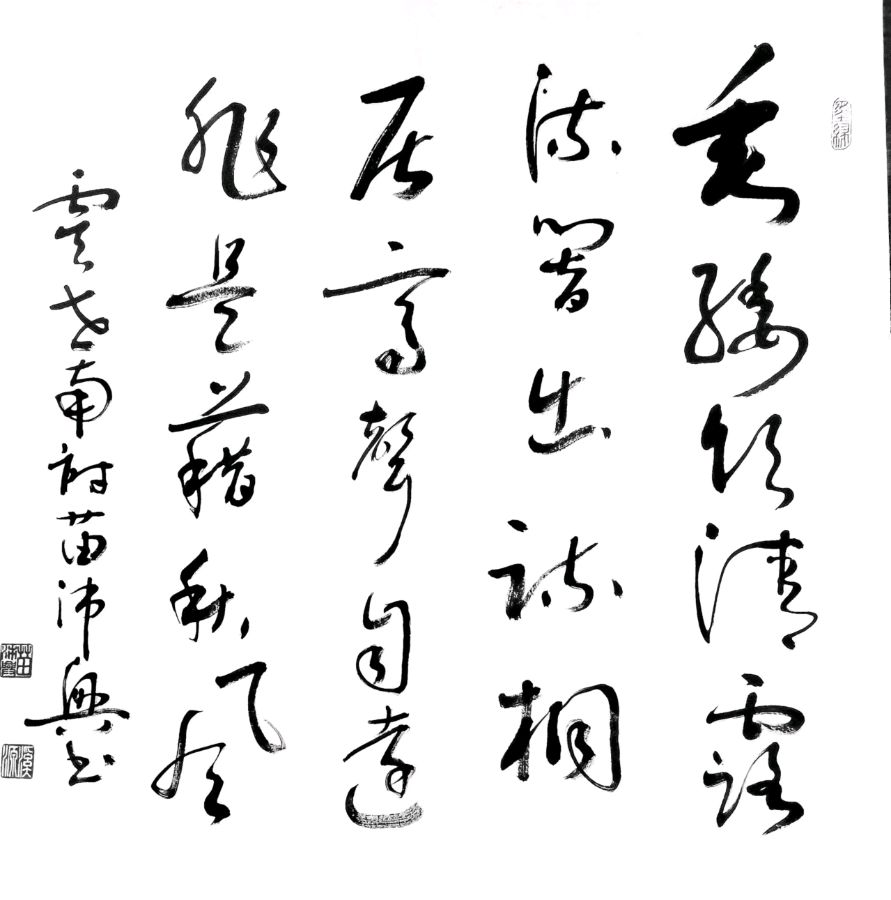 垂緌飲清露
流響出疏桐
居高聲自遠
非是藉秋風
虞世南詩苗沛興書